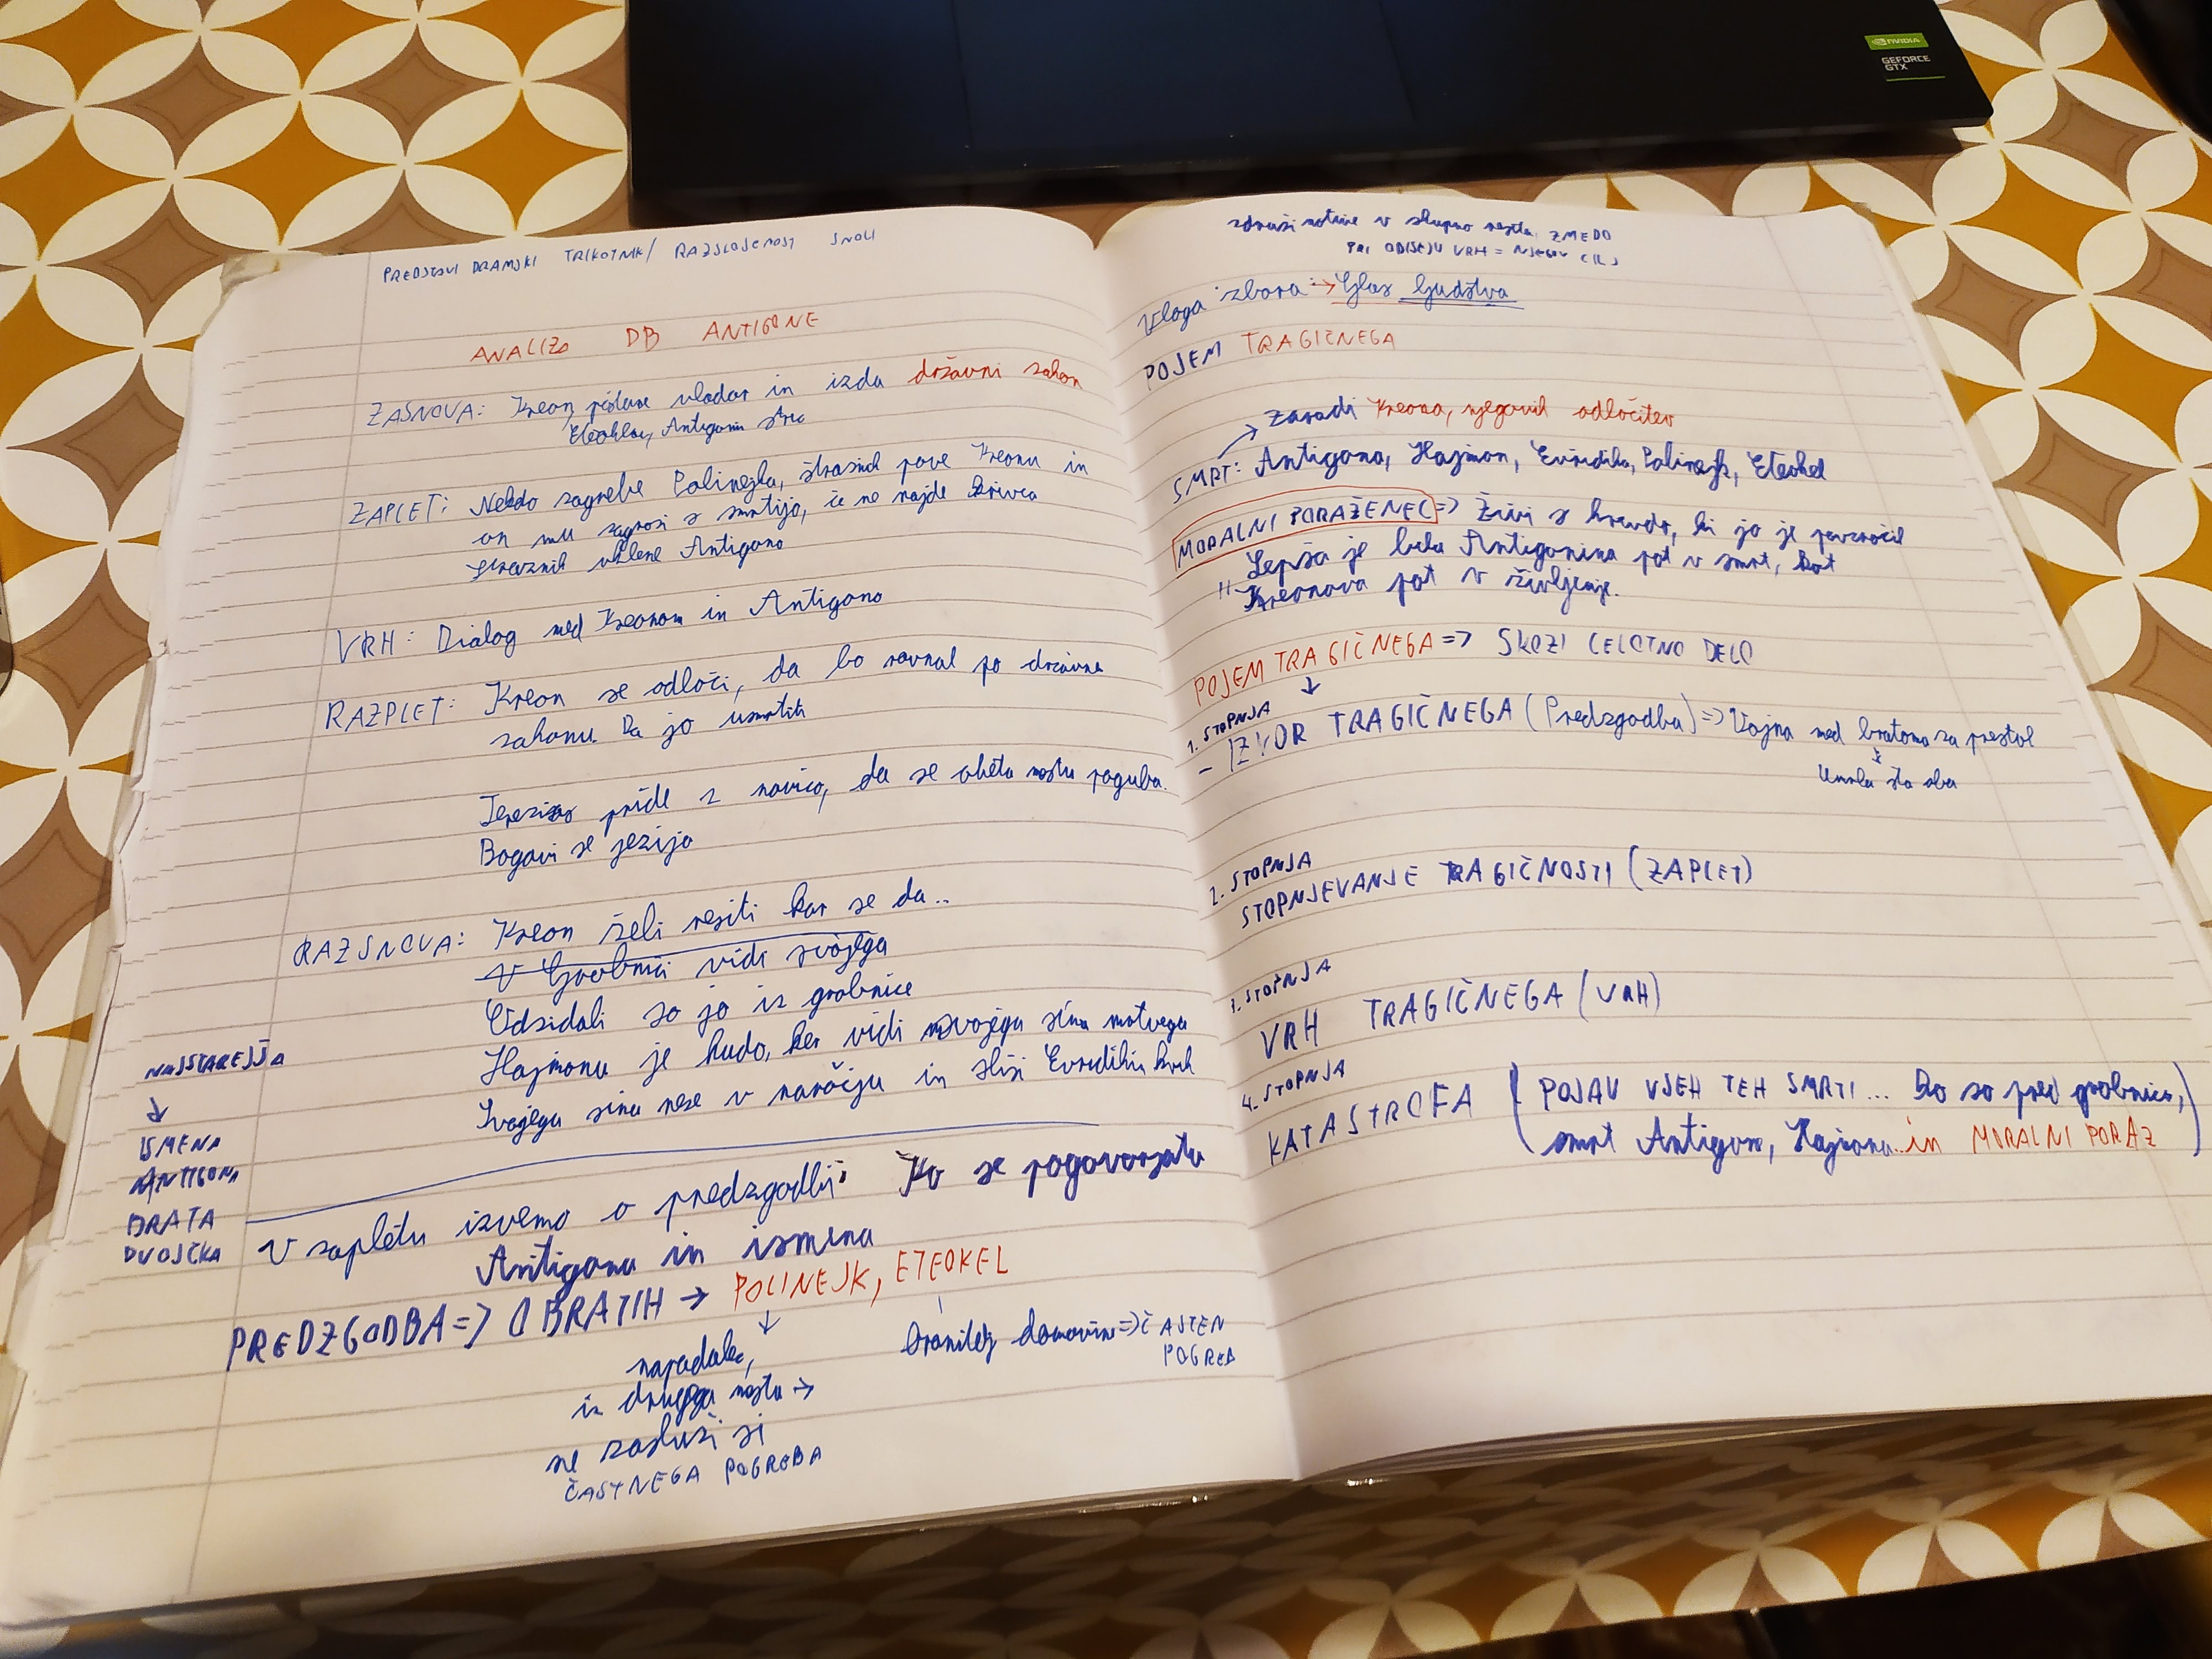 NVIDIA
GEFORCE
GTX
PREDSTAVI DRAMSKI TRIKOTNIK/ RAZSLOJENOST SNOVI
ANALIZA DB ANTIGONE
ZASNOVA: Kreon postane vladar in izda državni zakon
Antigonin stric
ZAPLET: Nekdo zagrebe Polinejka, stražnik pove Kreonu in
on mu zagrozi s smrtijo, če ne najde krivca
Antigono
VRH: Dialog med Kreonom in Antigono
RAZPLET: Kreon se odloči, da bo ravnal po državne
zakonu. Da jo usmrtiti
pride z novico, da se obeta mestu poguba.
Bogovi se jezijo
RAZSNOVA: Kreon želi rešiti kar se da..
v Grobnici vidi svojega
Odzidali so jo iz grobnice
Hajmonu je hudo, ker vidi svojega sina mrtvega
Svojega sina nese v naročju in sliši Evridikin krik
NAJSTAREJŠA
↓
ISMENA
ANTIGONA
BRATA
DVOJČKA
V zapletu izvemo o predzgodbi: Ko se pogovarjata
Antigona in ismena
PREDZGODBA => O BRATIH → POLINEJK, ETEOKEL
↓
napadalec,
iz drugega mesta →
ne zasluži si
ČASTNEGA POGREBA
branitelj domovine => ČASTEN
POGREB
združi motive v skupno ZMEDO
PRI ODISEJU VRH = NJEGOV CILJ
Vloga zbora: → Glas ljudstva
POJEM TRAGIČNEGA
zaradi Kreona, njegovih odločitev
SMRT: Antigona, Hajmon, Evridika, Polinejk, Eteokel
MORALNI PORAŽENEC => Živi s krivdo, ki jo je povzročil
" Lepša je bila Antigonina pot v smrt, kot
Kreonova pot v življenje.
POJEM TRAGIČNEGA => SKOZI CELOTNO DELO
↓
1. STOPNJA
- IZVOR TRAGIČNEGA (Predzgodba) => Vojna med bratoma za prestol
↓
Umrla sta oba
2. STOPNJA
STOPNJEVANJE TRAGIČNOSTI (ZAPLET)
3. STOPNJA
VRH TRAGIČNEGA (VRH)
4. STOPNJA
KATASTROFA (POJAV VSEH TEH SMRTI... Ko so pred grobnico,
smrt Antigone, Hajmona.. in MORALNI PORAZ)